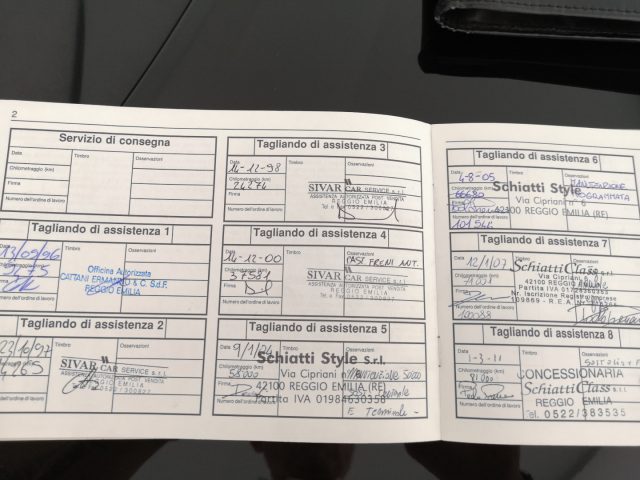 2
Servizio di consegna
Data
Timbro
Osservazioni
Chilometraggio (km)
Firma
Numero dell'ordine di lavoro
Tagliando di assistenza 1
Data
Timbro
Osservazioni
13/09/96
Officina Autorizzata
CATTANI ERMANNO & C. S.d.F.
REGGIO EMILIA
Numero dell'ordine di lavoro
Tagliando di assistenza 2
Timbro
Osservazioni
23/10/97
SIVAR CAR SERVICE s.r.l.
ASSISTENZA AUTORIZZATA POST VENDITA
REGGIO EMILIA
Numero dell'ordine di lavoro
Tagliando di assistenza 3
Data
Timbro
Osservazioni
14-12-98
Chilometraggio (km)
SIVAR CAR SERVICE s.r.l.
Firma
ASSISTENZA AUTORIZZATA POST VENDITA
REGGIO EMILIA
Numero dell'ordine di lavoro
Tagliando di assistenza 4
Data
Timbro
Osservazioni
14-12-00
PAST FRENI ANT.
Chilometraggio (km)
37591
SIVAR CAR SERVICE s.r.l.
Firma
ASSISTENZA AUTORIZZATA POST VENDITA
REGGIO EMILIA
Numero dell'ordine di lavoro
Tagliando di assistenza 5
Data
Timbro
Osservazioni
9/1/04
Schiatti Style s.r.l.
Chilometraggio (km)
58000
Via Cipriani
Firma
42100 REGGIO EMILIA (RE)
Numero dell'ordine di lavoro
Partita IVA 01984630358
E Terminale
Tagliando di assistenza 6
Data
Timbro
Osservazioni
4-8-05
MANUTENZIONE
Chilometraggio (km)
Schiatti Style
PROGRAMMATA
66680
Via Cipriani n. 6
Firma
42100 REGGIO EMILIA (RE)
Numero dell'ordine di lavoro
Tagliando di assistenza 7
Data
Timbro
Osservazioni
12/1/07
SchiattiClass s.r.l.
Chilometraggio (km)
71021
Via Cipriani
42100 REGGIO EMILIA
Firma
Partita IVA
Nr. Iscrizione Registro Imprese
Numero dell'ordine di lavoro
109869 - R.E.A.
Tagliando di assistenza 8
Data
Timbro
Osservazioni
1-3-11
Chilometraggio (km)
81000
CONCESSIONARIA
Firma
SchiattiClass s.r.l.
REGGIO EMILIA
Numero dell'ordine di lavoro
Tel. 0522/383535